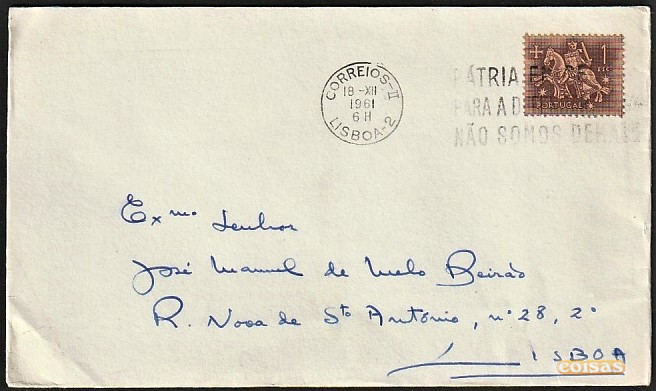 CORREIOS-II
18-XII
1961
6H
LISBOA-2
1
PORTUGAL
PÁTRIA
PARA A
NÃO SOMOS DEMAIS
Exmo. Senhor
José Manuel de Melo Beirão
R. Nova de Sto António, nº 28, 2º
LISBOA
coisas